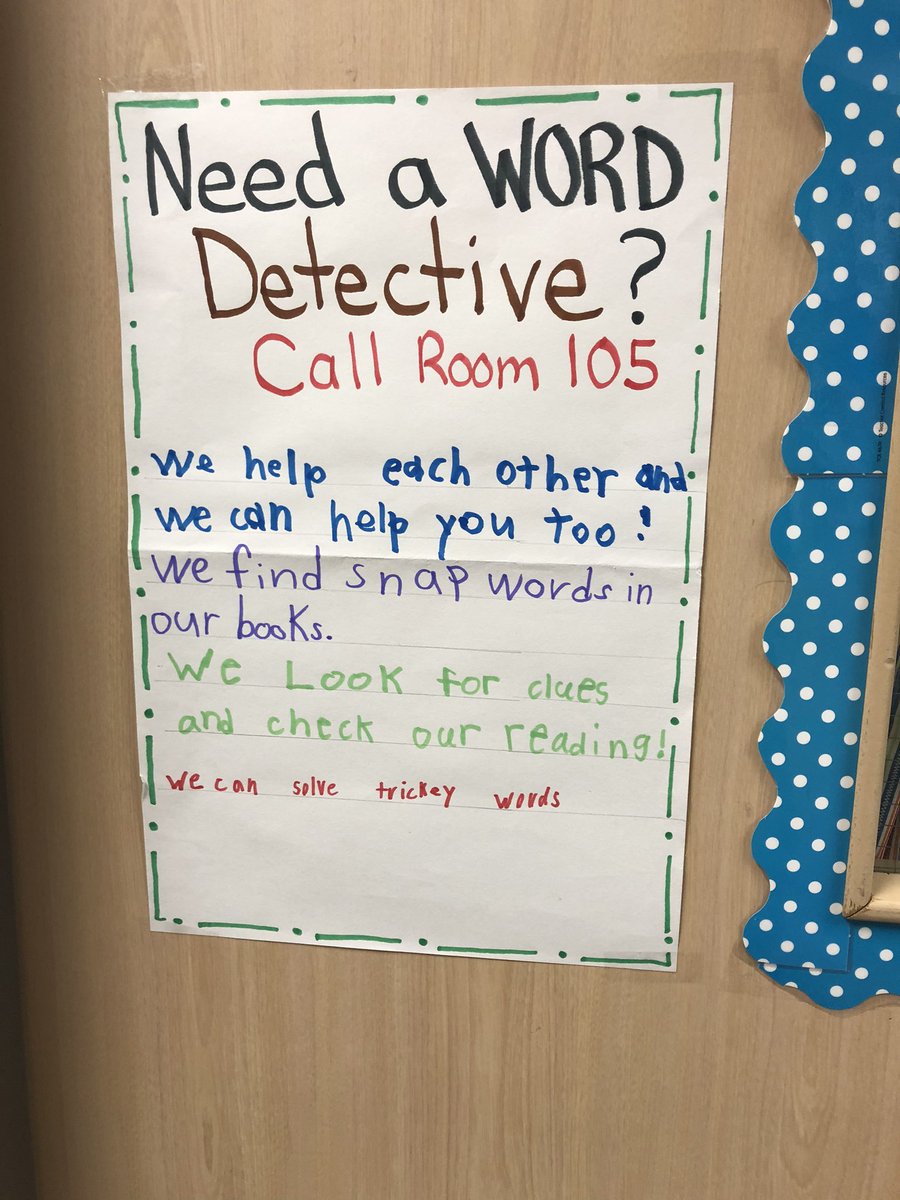 Need a WORD
Detective?
Call Room 105
We help each other and
we can help you too!
We find snap words in
our books.
We Look for clues
and check our reading!
We can solve trickey words